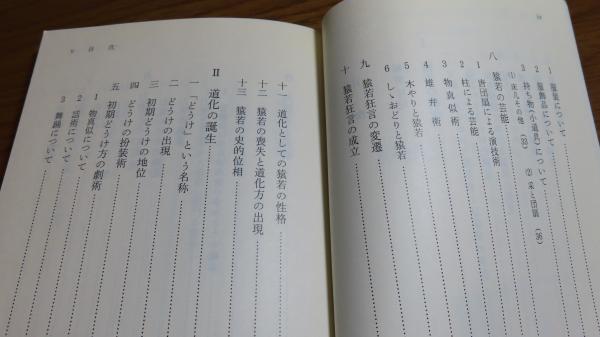 1 服装について
2 服飾品について
3 持ち物(小道具)について
(1) 床几その他 (33) (2) 采と団扇 (36)
八 猿若の芸能
1 唐団扇による演技術
2 柱による芸能
3 物真似術
4 雄弁術
5 木やりと猿若
6 しゝおどりと猿若
九 猿若狂言の変遷
十 猿若狂言の成立
十一 道化としての猿若の性格
十二 猿若の喪失と道化方の出現
十三 猿若の史的位相
II 道化の誕生
一 「どうけ」という名称
二 どうけの出現
三 初期どうけの地位
四 どうけの扮装術
五 初期どうけ方の劇術
1 物真似について
2 話術について
3 舞踊について
目次